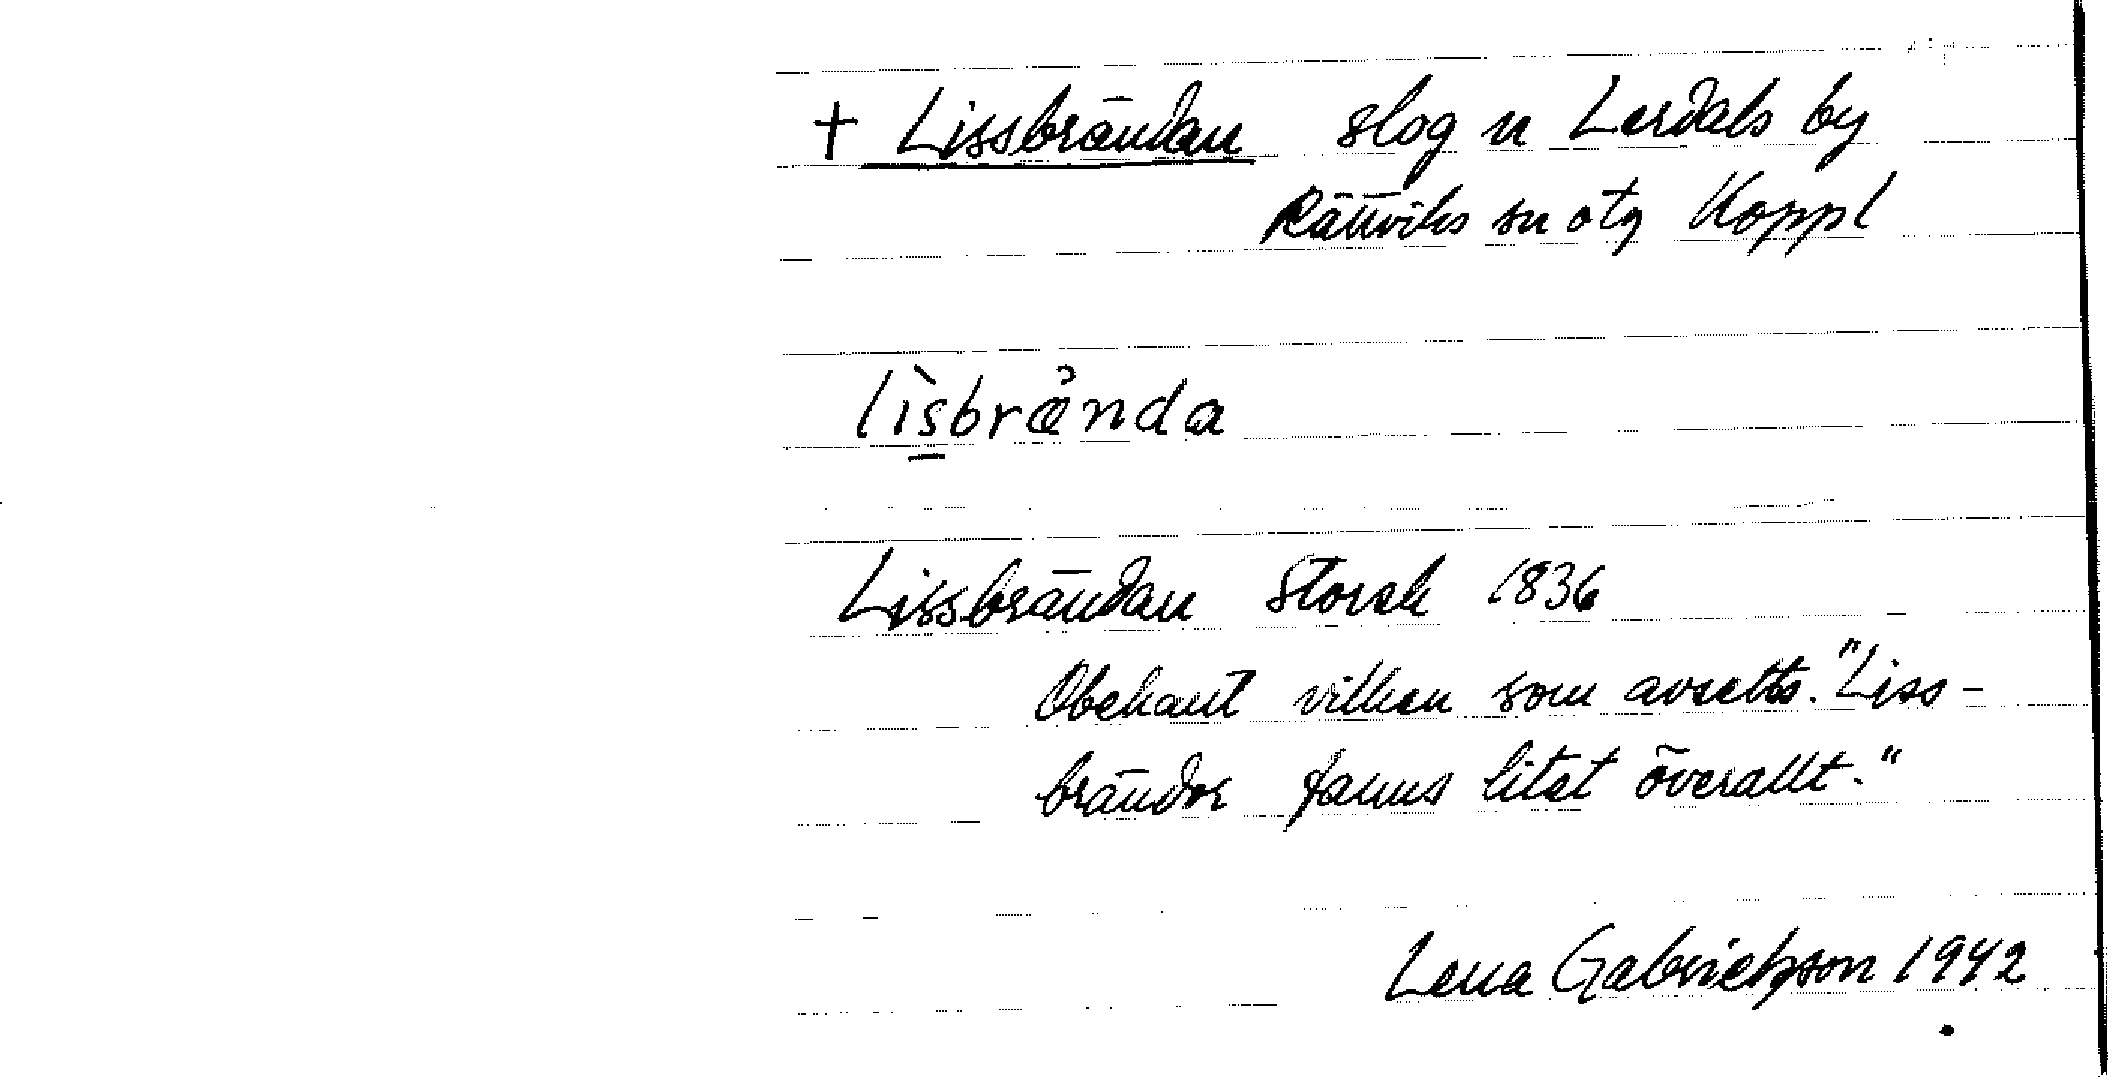 + Lissbrändan slog n Lerdals by
Rättviks sn otg Koppl
lìsbrända
Lissbrändan Storsk 1836
Obekant vilken som avsetts. "Liss-
brändor fanns litet överallt."
Lena Gabrielsson 1942